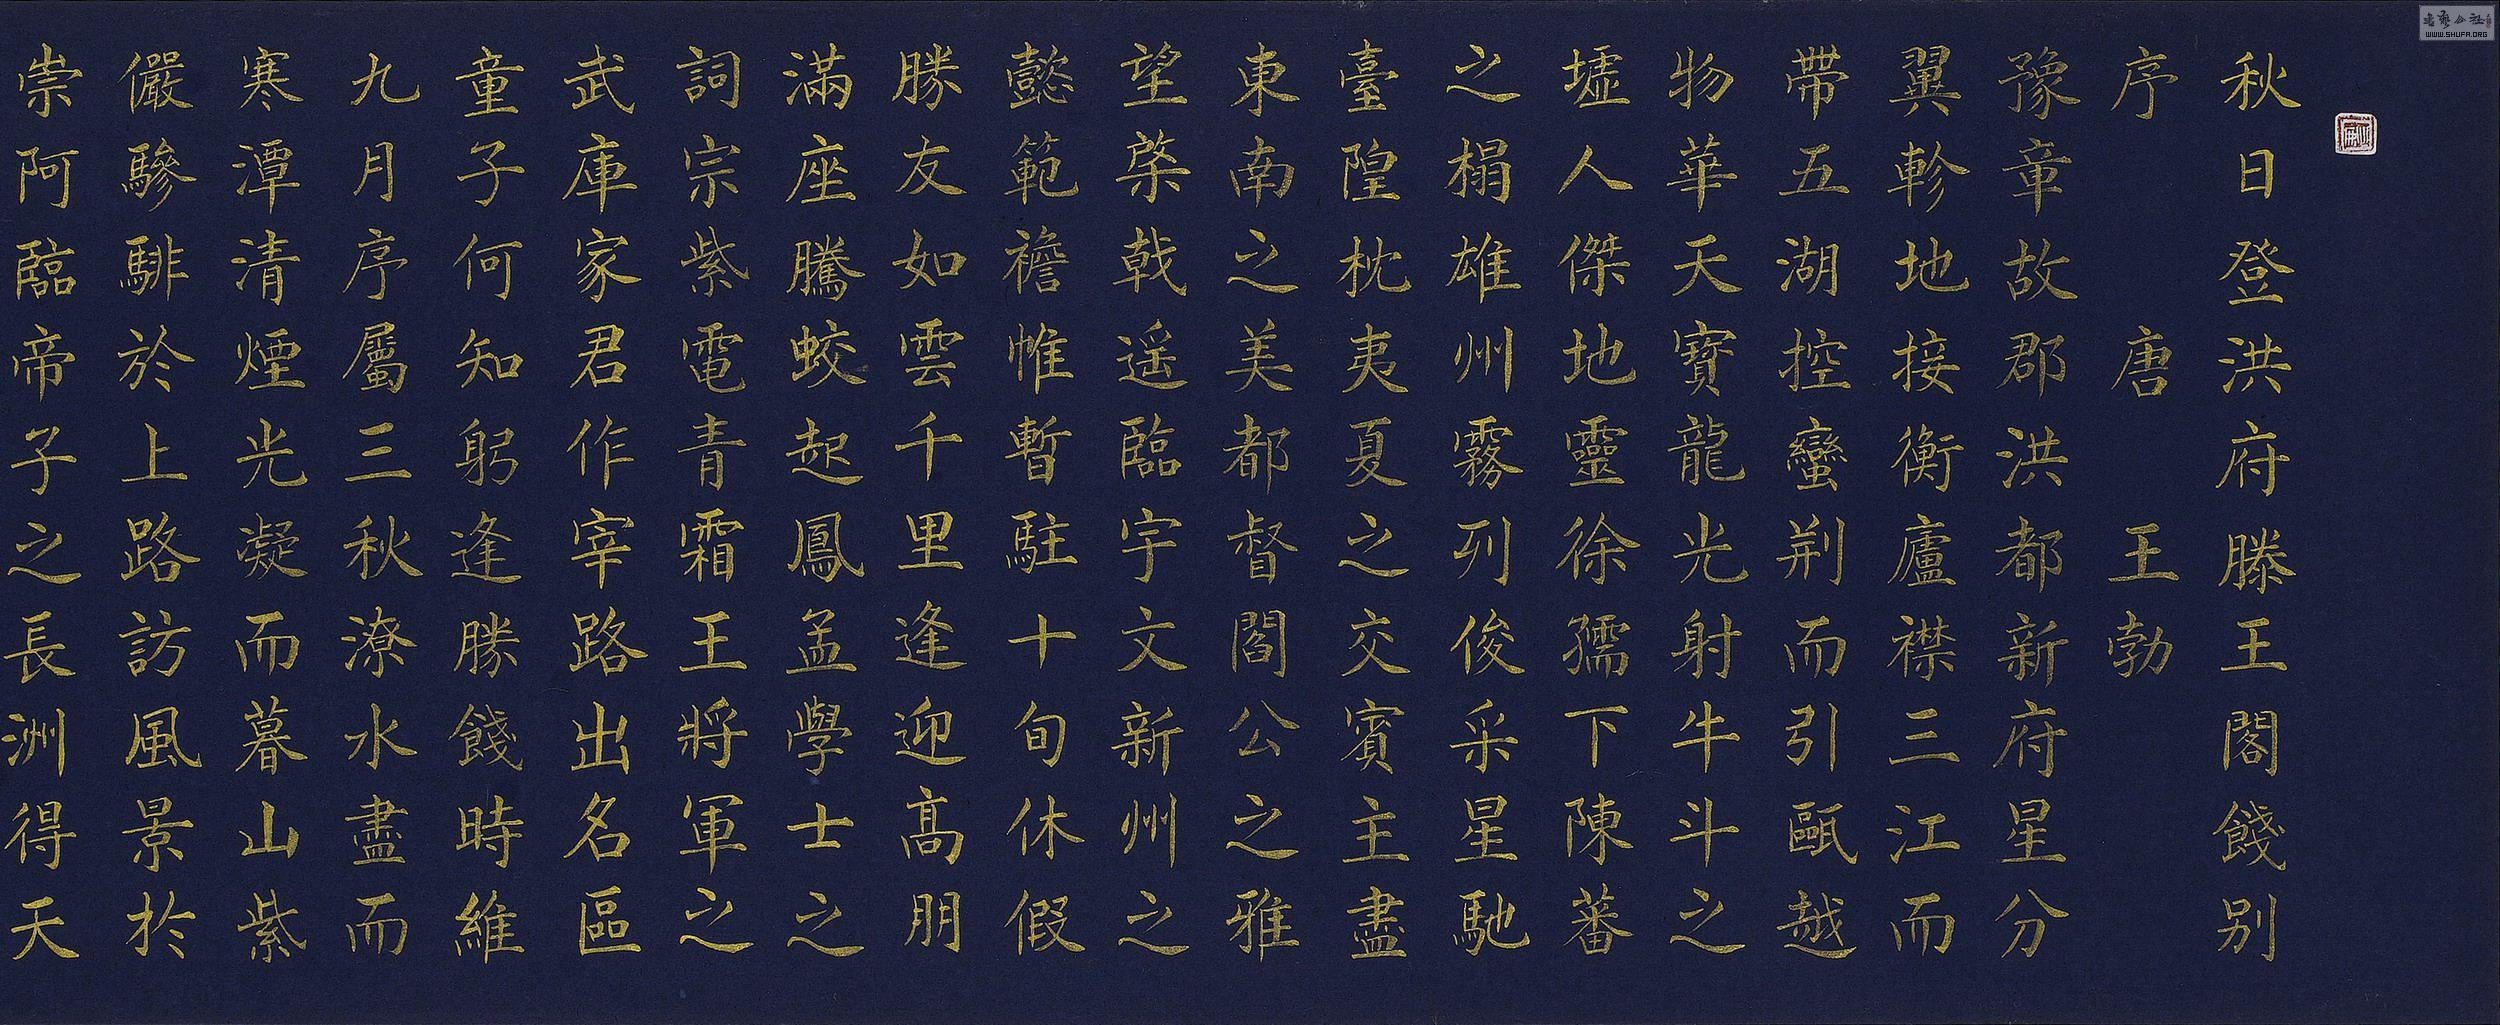 秋日登洪府滕王閣餞别
序 唐 王勃
豫章故郡洪都新府星分
翼軫地接衡廬襟三江而
帶五湖控蠻荆而引甌越
物華天寶龍光射牛斗之
墟人傑地靈徐孺下陳蕃
之榻雄州霧列俊采星馳
臺隍枕夷夏之交賓主盡
東南之美都督閻公之雅
望棨戟遥臨宇文新州之
懿範襜帷暫駐十旬休假
勝友如雲千里逢迎高朋
滿座騰蛟起鳳孟學士之
詞宗紫電青霜王將軍之
武庫家君作宰路出名區
童子何知躬逢勝餞時維
九月序屬三秋潦水盡而
寒潭清煙光凝而暮山紫
儼驂騑於上路訪風景於
崇阿臨帝子之長洲得天
書藝公社
WWW.SHUFA.ORG